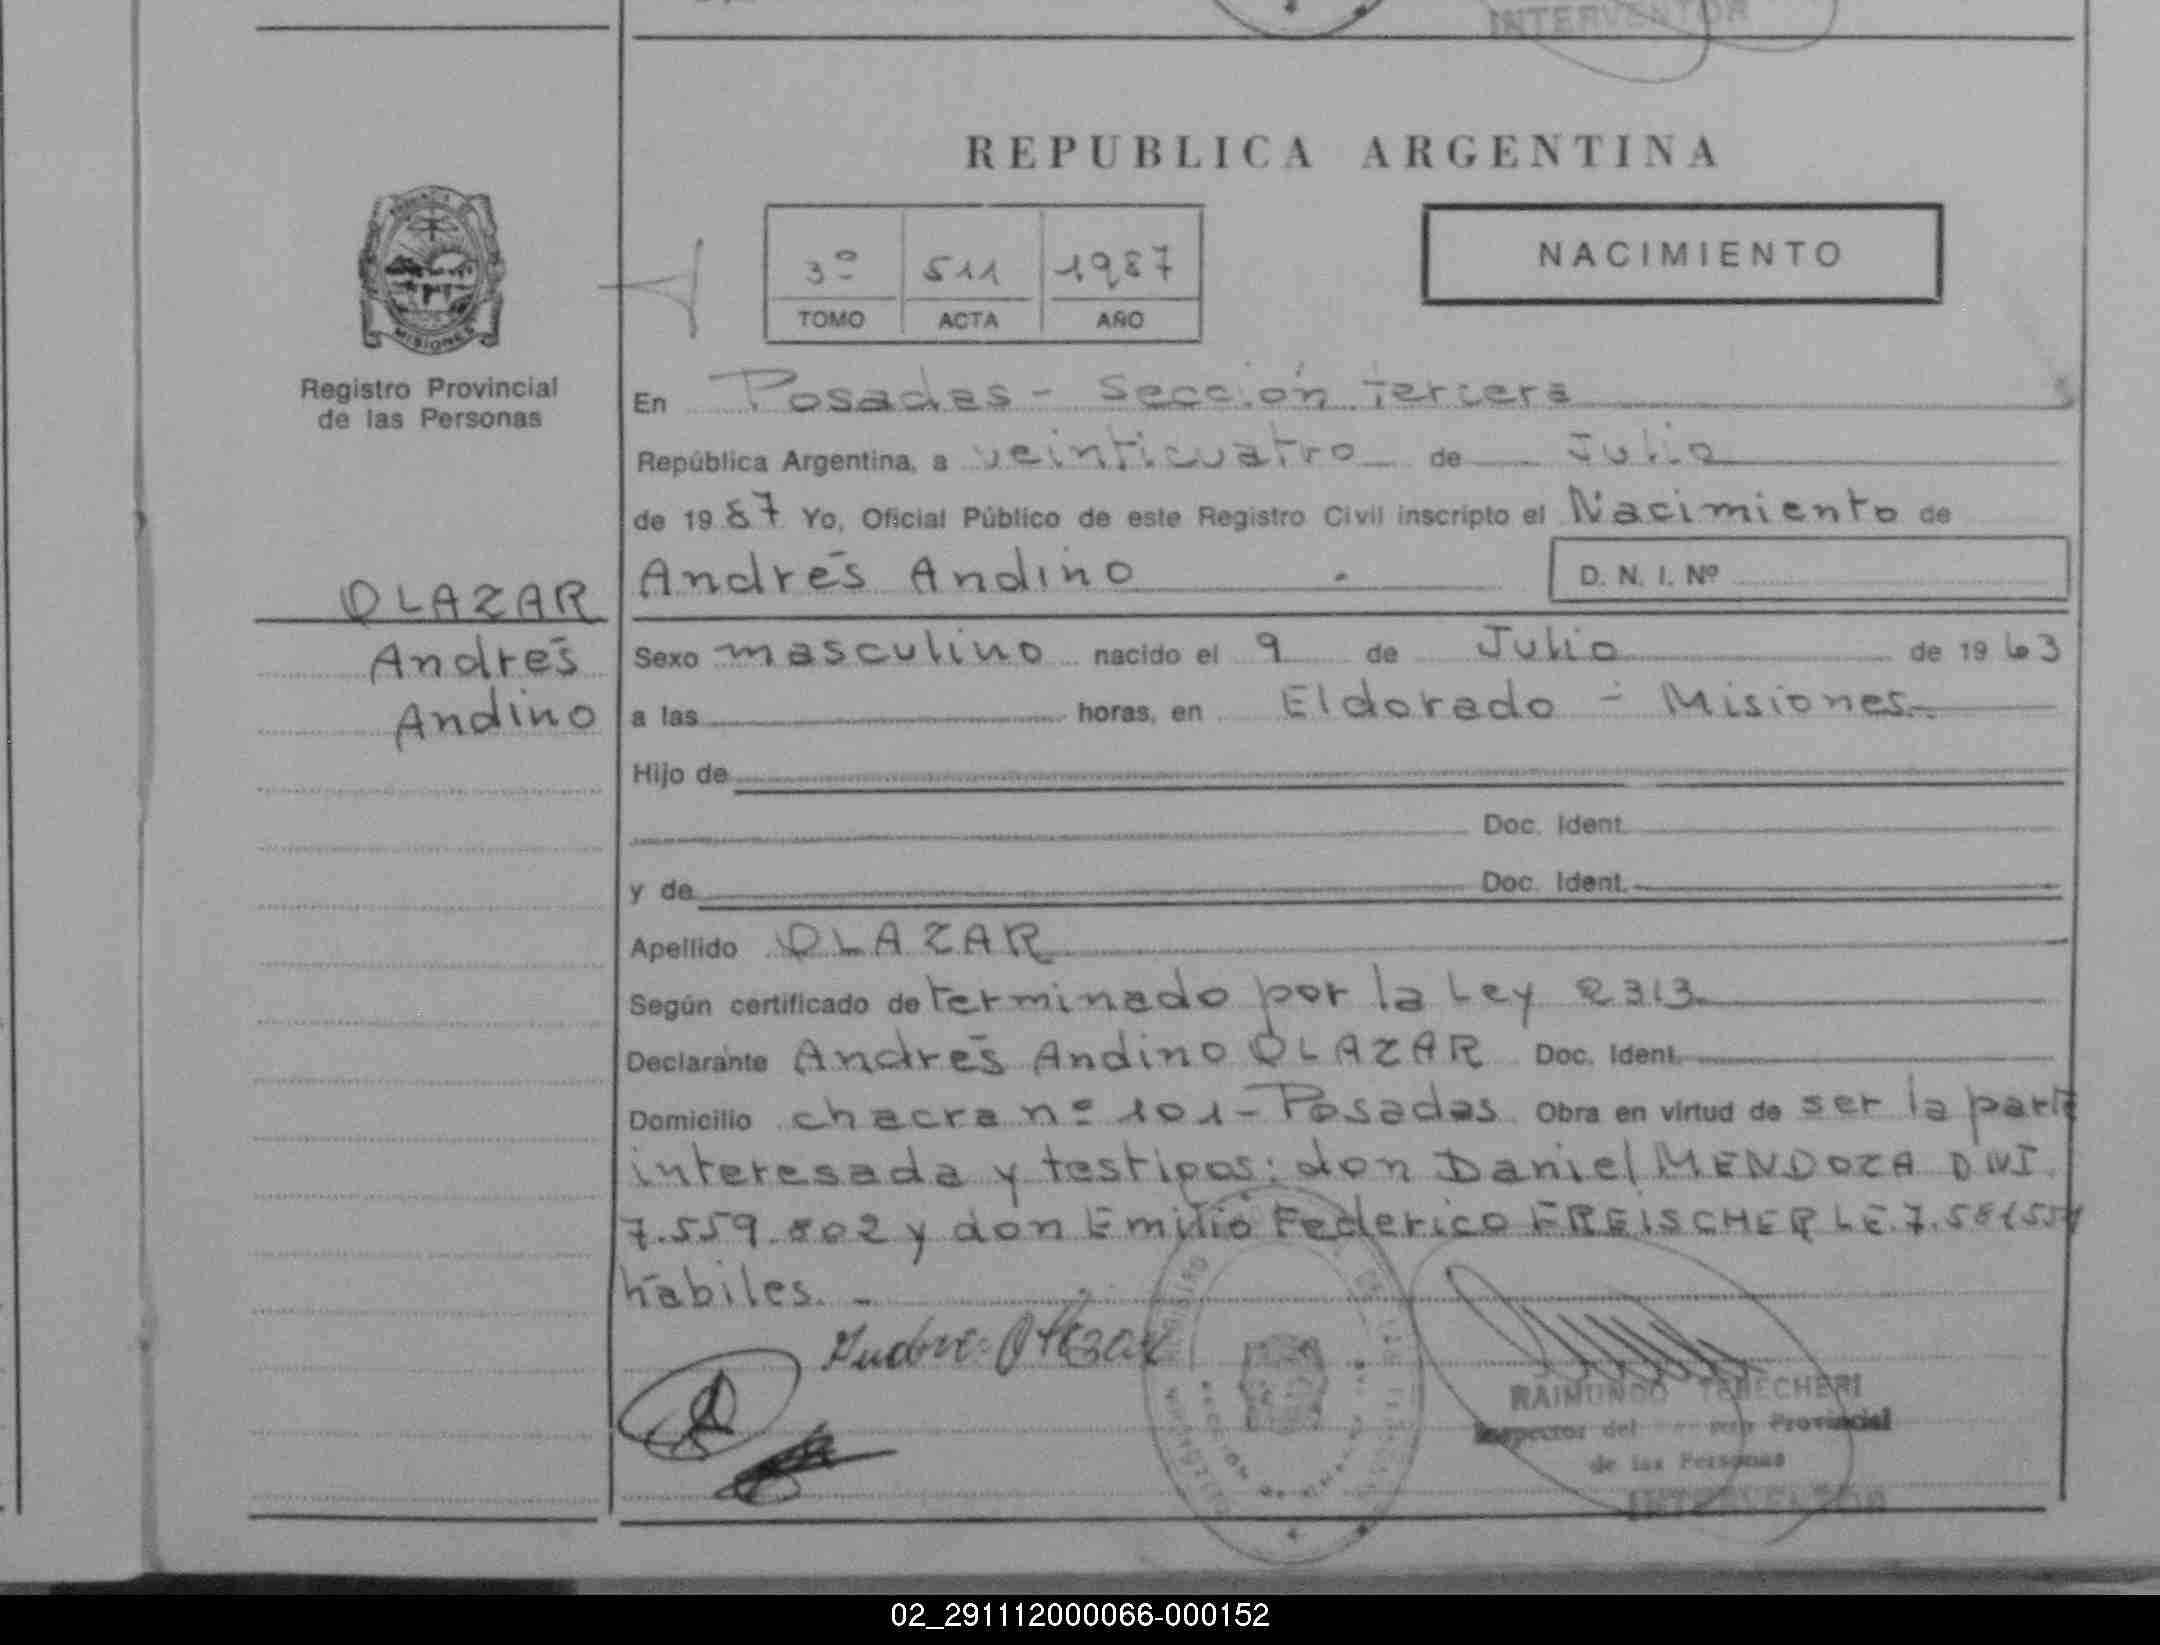 INTERVENTOR
REPUBLICA ARGENTINA
MISIONES
3º 511 1987
TOMO ACTA AÑO
NACIMIENTO
Registro Provincial
de las Personas
En Posadas - Sección tercera
República Argentina, a veinticuatro de Julio
de 1987 Yo, Oficial Público de este Registro Civil inscripto el Nacimiento de
Andrés Andino
D. N. I. Nº
OLAZAR
Andrés
Andino
Sexo masculino nacido el 9 de Julio de 1963
a las horas, en Eldorado - Misiones.
Hijo de
Doc. Ident.
y de Doc. Ident.
Apellido OLAZAR
Según certificado determinado por la Ley 2313
Declarante Andrés Andino OLAZAR Doc. Ident.
Domicilio chacra nº 101 - Posadas Obra en virtud de ser la parte
interesada y testigos: don Daniel MENDOZA DNI
7.559.802 y don Emilio Federico FREISCHER LE.7.
hábiles. -
Olazar
RAIMUNDO
Inspector del Provincial
de las Personas
INTERVENTOR
02_291112000066-000152